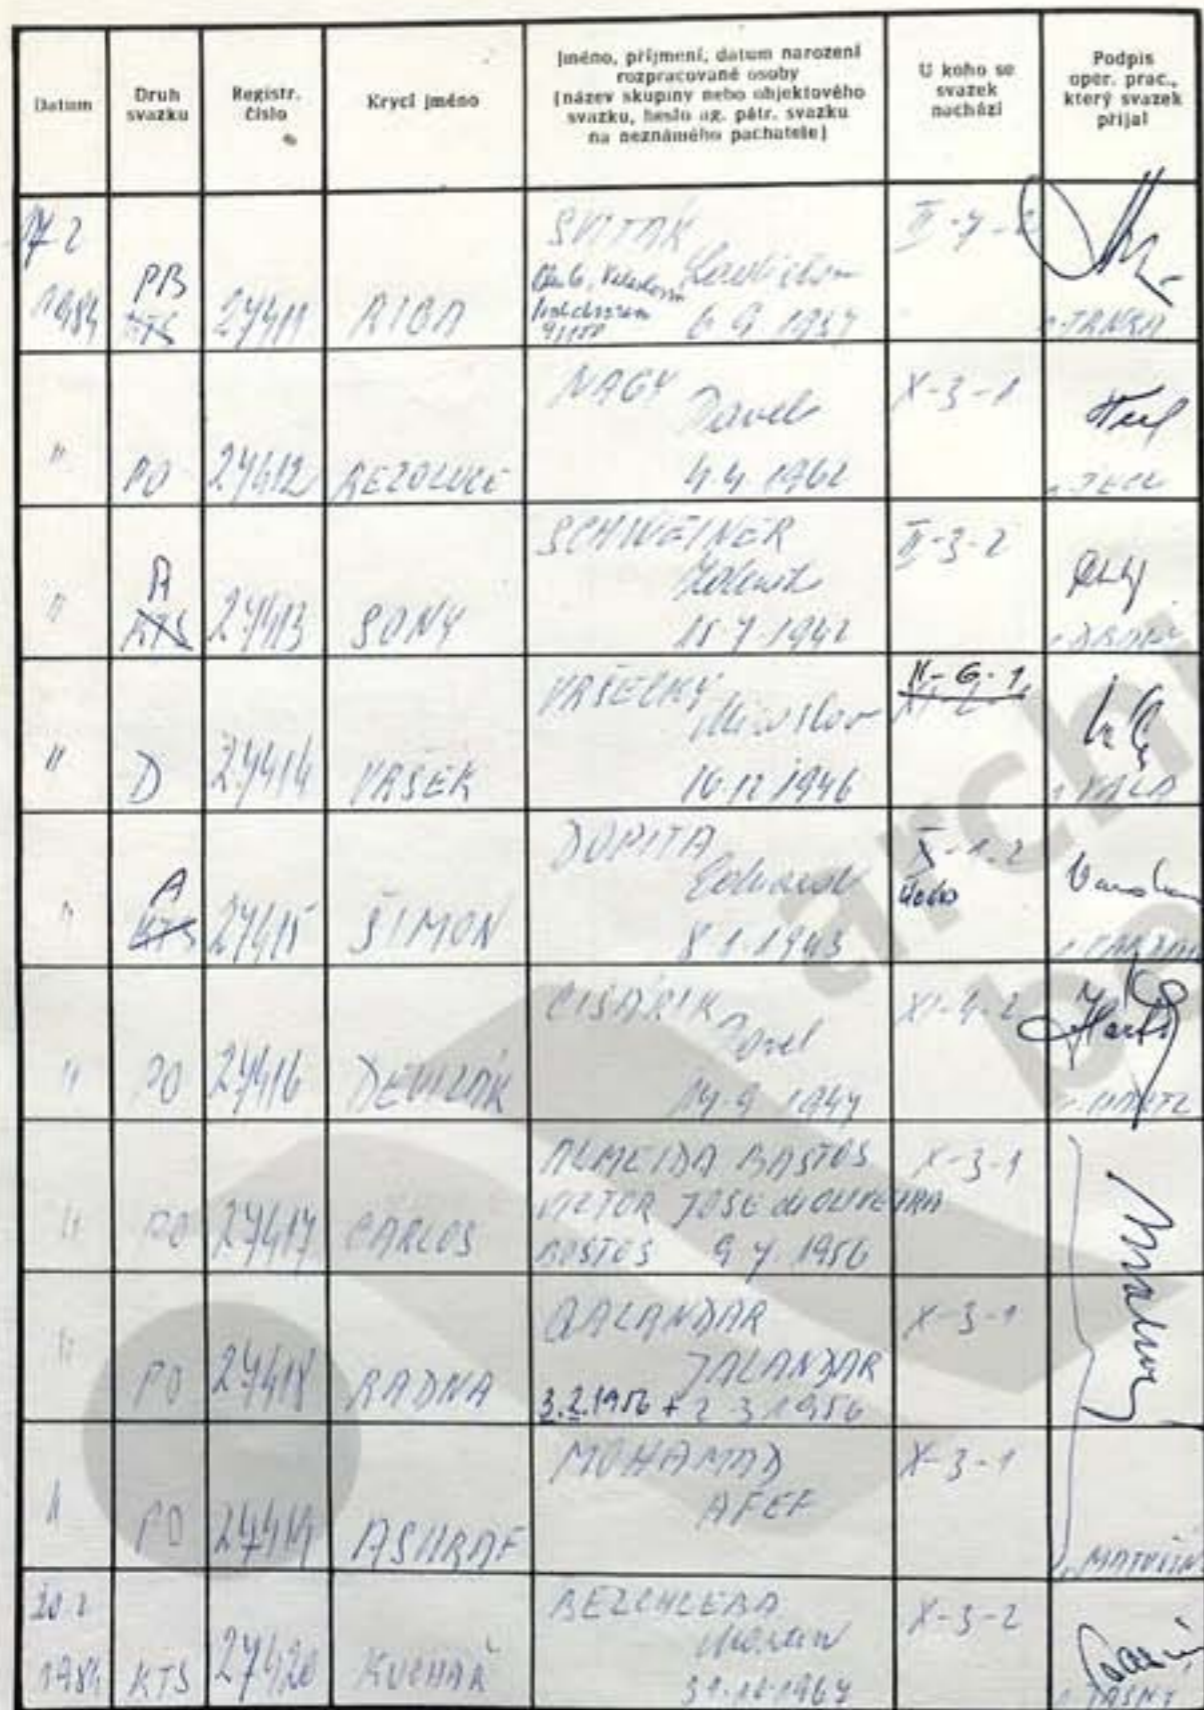 Datum
Druh svazku
Registr. číslo
Krycí jméno
Jméno, příjmení, datum narození
rozpracované osoby
(název skupiny nebo objektového
svazku, heslo ag. pátr. svazku
na neznámého pachatele)
U koho se svazek nachází
Podpis oper. prac., který svazek přijal
17 2 1984
PB
KTS
27411
RIBA
SVITÁK
Ladislav
6 9 1937
II-7-
TRNKA
"
PO
27412
REZOLUCE
NAGY
Pavel
4.4 1962
X-3-1
"
A
KTS
27413
SONY
SCHWEINER
Zdeněk
15 7 1942
II-3-2
"
D
27414
VRŠEK
VRŠECKÝ
Miroslav
10 12 1946
II-6-1
VALA
"
A
KTS
27415
ŠIMON
DOPITA
Eduard
8 1.1943
X-1-2
"
PO
27416
CISÁRIK
Pavel
14.9 1947
XI-4-2
"
PO
27417
CARLOS
ALMEIDA BASTOS
VICTOR JOSE de OLIVEIRA
BOSTOS 9 7 1956
X-3-1
"
PO
27418
RADNA
QALANDAR
JALANDAR
3.2.1956 + 2 3 1956
X-3-1
"
PO
27419
ASHRAF
MOHAMAD
AFEF
X-3-1
20 2
1984
KTS
27420
KUCHAŘ
BEZCHLEBA
X-3-2
archi
b